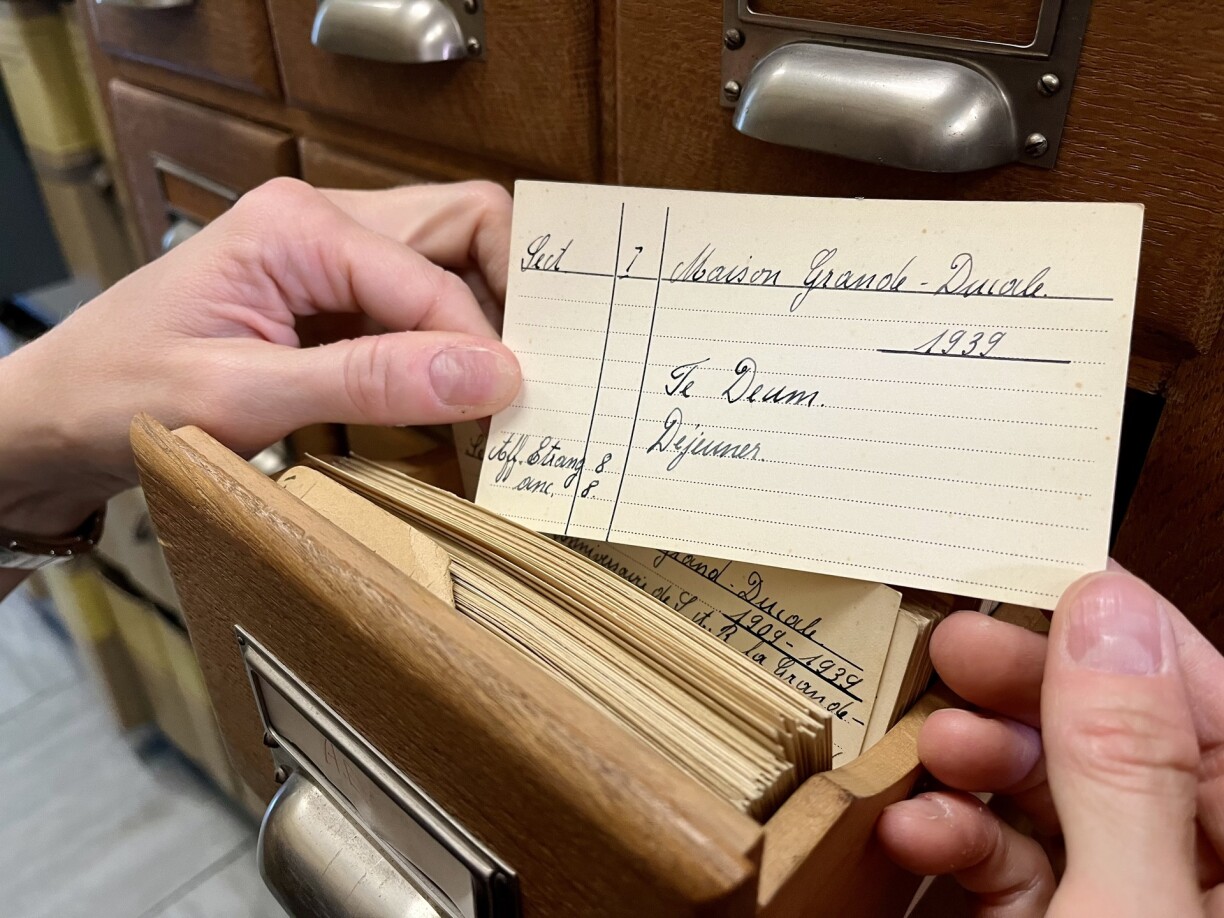 Sect. 7 Maison Grande-Ducale.
1939
Te Deum.
Déjeuner.
Aff. Etrang 8
anc. 8.
Grand-Ducale
1909-1939
anniversaire de S.A.R. la Grande-